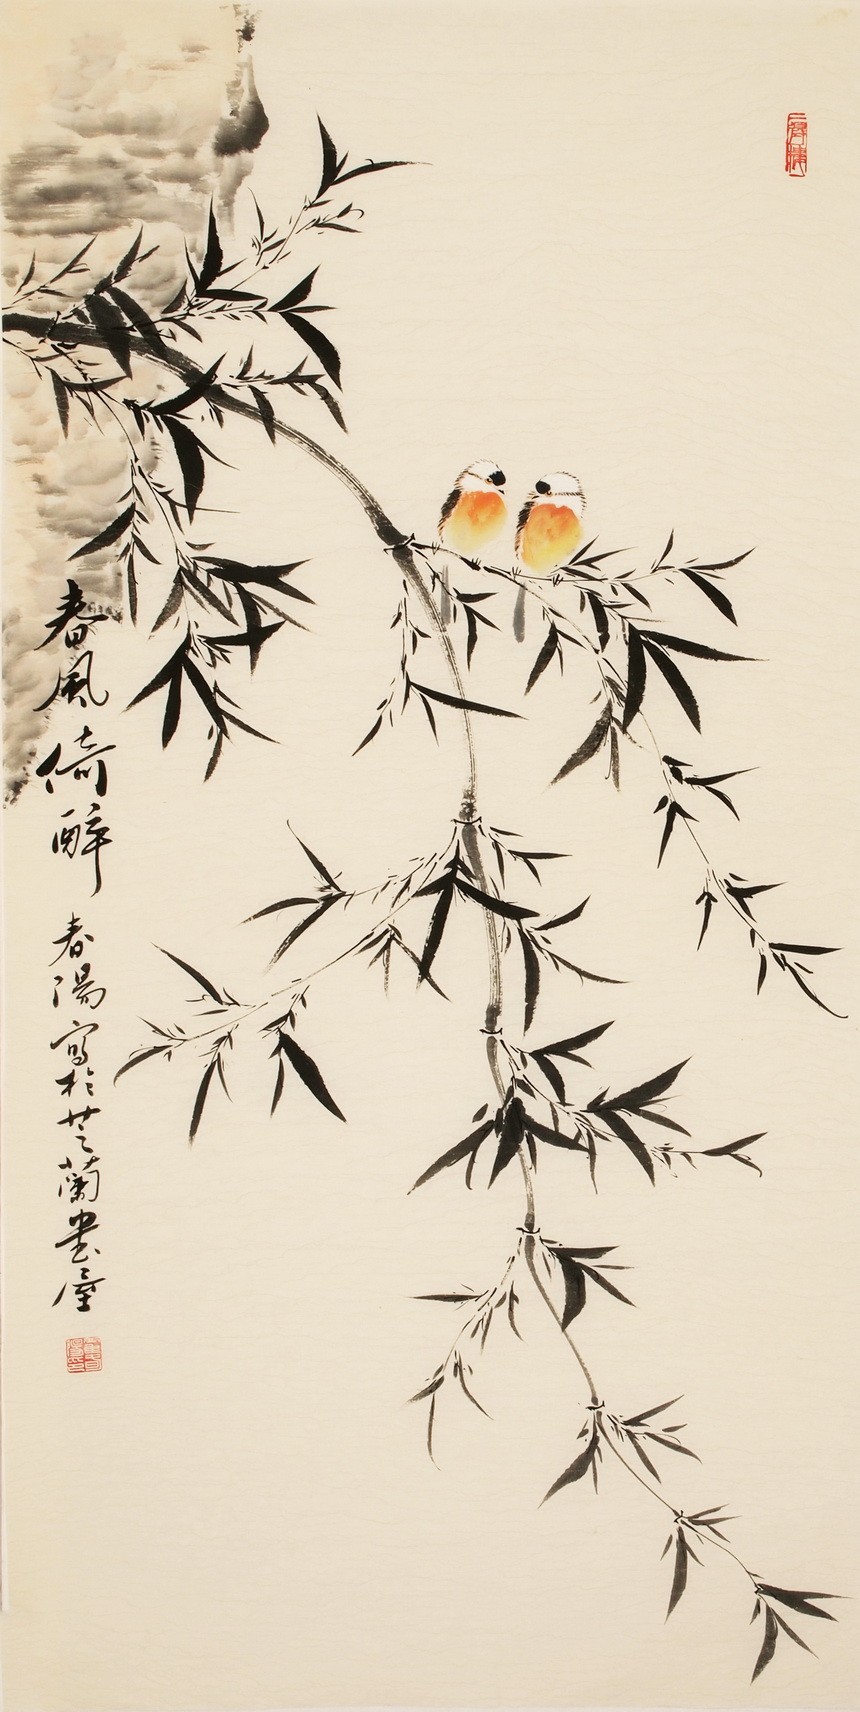 春風倚醉
春陽寫於芝蘭畫屋